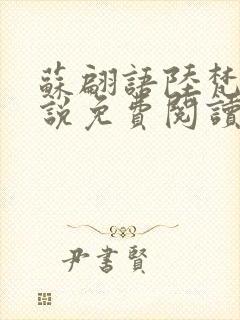 蘇翩語陸梵
說免費閱讀
尹書賢